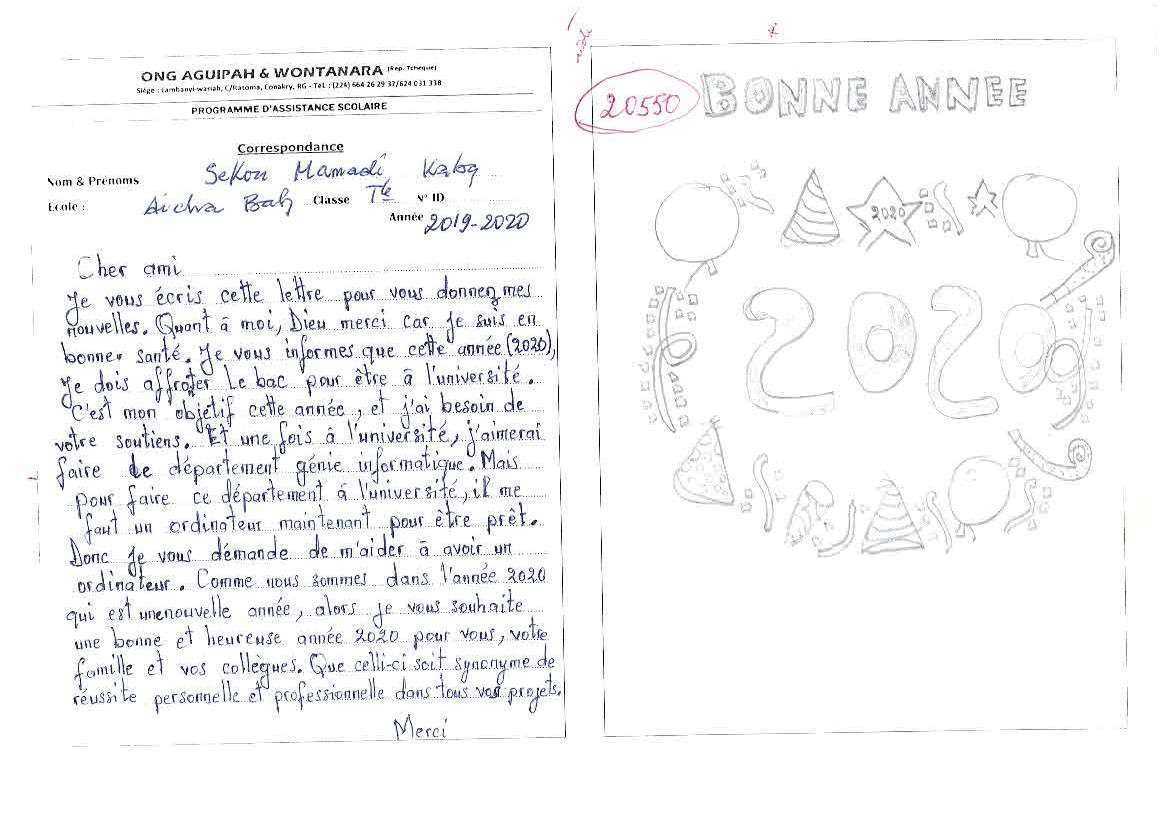 ONG AGUIPAH & WONTANARA (Rep. Tcheque)
Siège : Lambanyi-wariah, C/Ratoma, Conakry, RG - Tel. : (224) 664 26 29 37/624 031 338
PROGRAMME D'ASSISTANCE SCOLAIRE
Correspondance
Nom & Prénoms Sekou Mamadi Kaba
Ecole : Aicha Bah Classe Tle N° ID
Année 2019-2020
Cher ami
Je vous écris cette lettre pour vous donner mes
nouvelles. Quant à moi, Dieu merci car je suis en
bonne santé. Je vous informes que cette année (2020),
Je dois affroter le bac pour être à l'université.
C'est mon objetif cette année, et j'ai besoin de
votre soutiens. Et une fois à l'université, j'aimerai
faire le département génie informatique. Mais
pour faire ce département à l'université, il me
faut un ordinateur maintenant pour être prêt.
Donc je vous démande de m'aider à avoir un
ordinateur. Comme nous sommes dans l'année 2020
qui est une nouvelle année, alors je vous souhaite
une bonne et heureuse année 2020 pour vous, votre
famille et vos collègues. Que celli-ci soit synonyme de
réussite personnelle et professionnelle dans tous vos projets.
Merci
20550
BONNE ANNEE
2020
2020